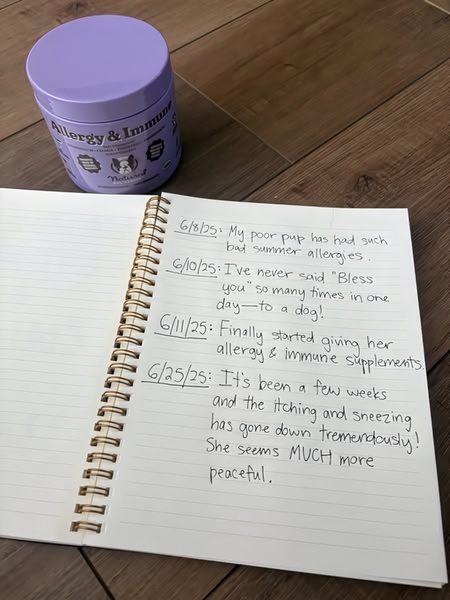 Allergy & Immune
Natural
6/8/25: My poor pup has had such
bad summer allergies.
6/10/25: I've never said "Bless
you" so many times in one
day—to a dog!
6/11/25: Finally started giving her
allergy & immune supplements.
6/25/25: It's been a few weeks
and the itching and sneezing
has gone down tremendously!
She seems MUCH more
peaceful.